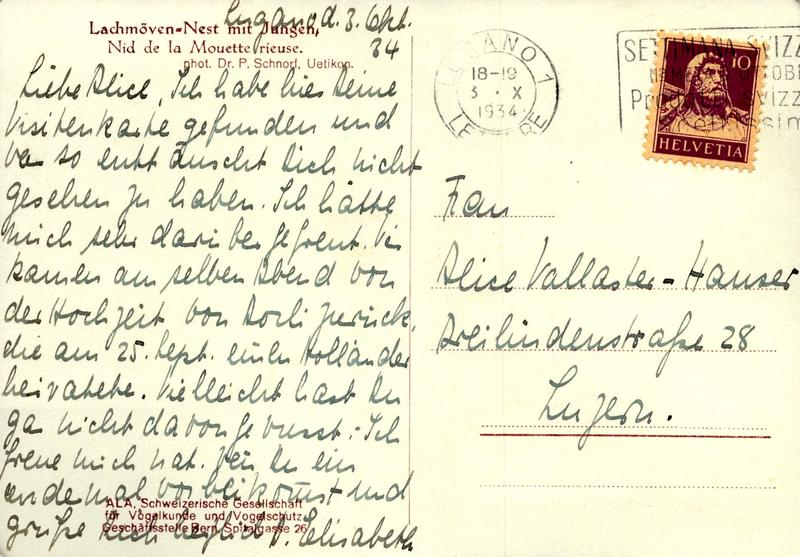 Lugano d. 3. Okt.
34
Lachmöven-Nest mit Jungen,
Nid de la Mouette rieuse.
phot. Dr. P. Schnorf, Uetikon.
Liebe Alice, Ich habe hier Deine
Visitenkarte gefunden und
war so enttäuscht Dich nicht
gesehen zu haben. Ich hätte
mich sehr darüber gefreut. Wir
kamen am selben Abend von
der Hochzeit von Dorli zurück,
die am 25. Sept. einen Holländer
heiratete. Vielleicht hast Du
ga nicht davon gewusst. Ich
freue mich nat. wen Du ein
andermal vorbeikomst und
grüße Dich herzlich D. Elisabeth
ALA, Schweizerische Gesellschaft
für Vogelkunde und Vogelschutz
Geschäftsstelle Bern, Spitalgasse 26
LUGANO 1
18-19
3 · X
1934
LETTERE
SETTIMANA SVIZZ
OTTOBR
10
HELVETIA
Frau
Alice Vallaster-Hauser
Dreilindenstraße 28
Luzern.